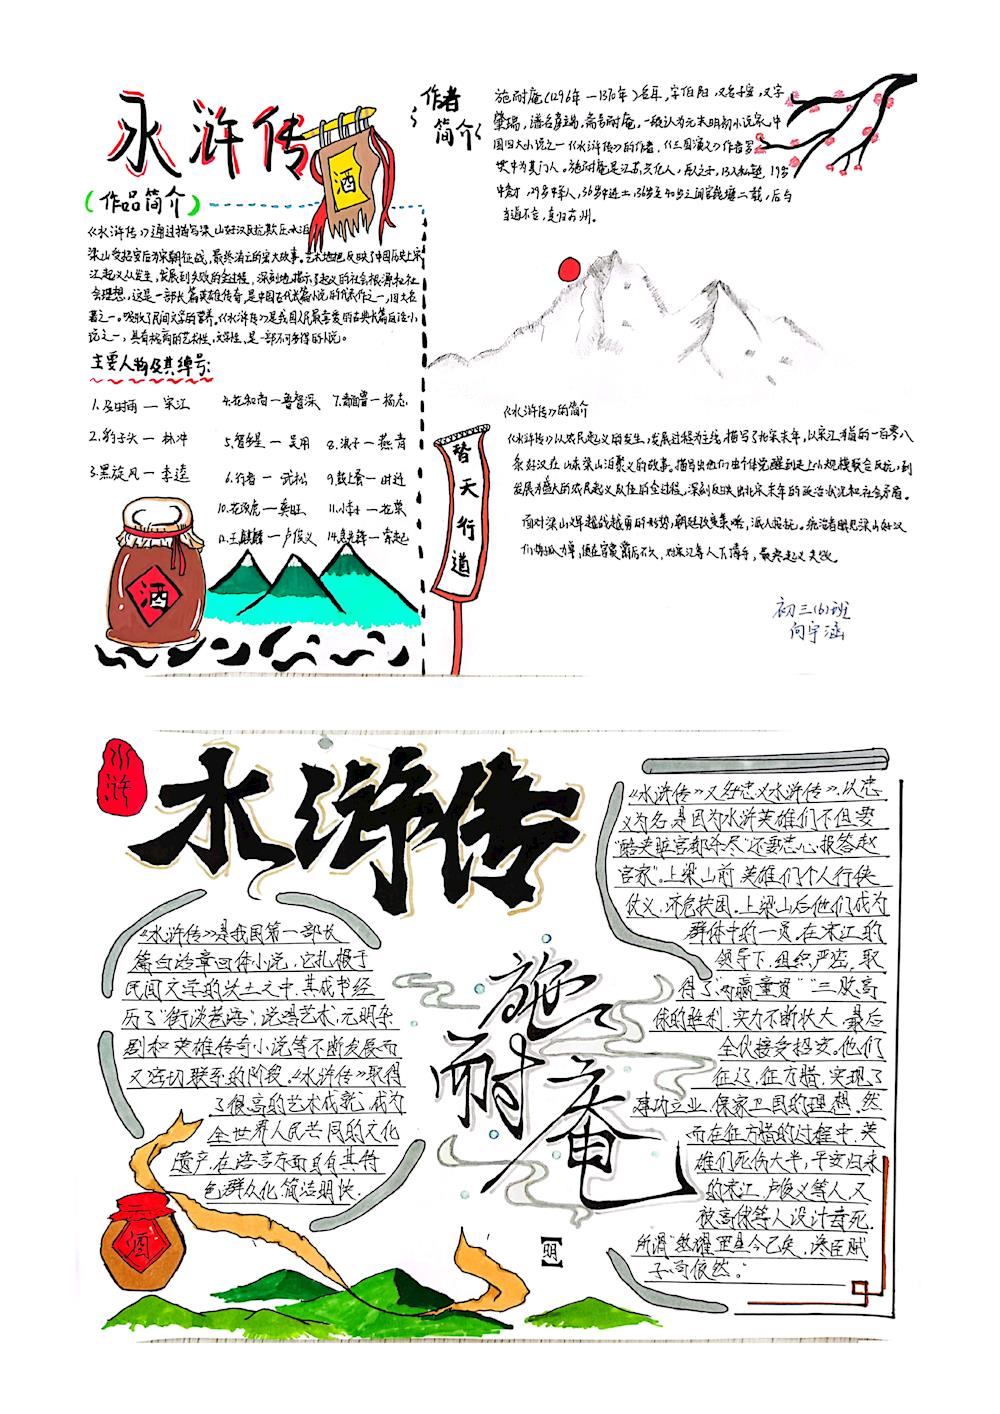 水浒传
酒
(作品简介)
《水浒传》通过描写梁山好汉反抗欺压水泊
梁山受招安后为宋朝征战,最终消亡的宏大故事。艺术地反映了中国历史上宋
江起义从发生,发展到失败的全过程,深刻地揭示了起义的社会根源和社
会理想,这是一部长篇英雄传奇,是中国古代长篇小说的代表作之一,四大名
著之一。吸收了民间文学的营养。《水浒传》是我国人民最喜爱的古典长篇白话小
说之一,具有极高的艺术性,文学性,是一部不可多得的小说。
主要人物及其绰号:
1.及时雨—宋江
4.花和尚—鲁智深
7.青面兽—杨志
2.豹子头—林冲
5.智多星—吴用
8.浪子—燕青
3.黑旋风—李逵
6.行者—武松
9.鼓上蚤—时迁
10.花项虎—龚旺
11.小李广—花荣
12.玉麒麟—卢俊义
酒
作者
简介
施耐庵(1296年—1370年)名耳,字伯阳,又名子安,又字
肇瑞,潘名彦瑞,斋号耐庵。一般认为元末明初小说家,中
国四大小说之一《水浒传》的作者,《三国演义》作者罗
贯中为其门人,施耐庵是江苏兴化人
中秀才,29岁中举人,36岁中进士
当道不合,复归苏州。
替天行道
《水浒传》的简介
《水浒传》以农民起义的发生,发展过程为主线,描写了北宋末年,以宋江为首的一百零八
条好汉在山东梁山泊聚义的故事。描写出他们由个体觉醒到走上小规模联合反抗,到
发展为盛大的农民起义队伍的全过程,深刻反映出北宋末年的政治状况和社会矛盾。
面对梁山好汉越战越勇的形势,朝廷改变策略,派人招抚。
最终起义失败。
初三(6)班
向宇涵
水浒
水浒传
《水浒传》是我国第一部长
篇白话章回体小说,它扎根于
民间文学的沃土之中,其成书经
历了"街谈巷语",说唱艺术,元明杂
剧和英雄传奇小说等不断发展而
又密切联系的阶段。《水浒传》取得
了很高的艺术成就,成为
全世界人民共同的文化
遗产,在语言方面具有其特
色群众化,简洁明快.
酒
施
耐
庵
【明】
《水浒传》又名忠义水浒传》,以忠
义为名是因为水浒英雄们不但要
"酷吏赃官都杀尽"还要"忠心报答赵
官家"。上梁山前英雄们个人行侠
仗义,济危扶困。上梁山后他们成为
群体中的一员。在宋江的
领导下,组织严密,取
得了"两赢童贯""三败高
俅的胜利,实力不断壮大,最后
全伙接受招安。他们
征辽,征方腊,实现了
建功立业,保家卫国的理想。然
而在征方腊的过程中,英
雄们死伤大半,平安归来
的宋江,卢俊义等人,又
被高俅等人设计毒死.
所谓"煞曜罡星今已矣,谗臣贼
子尚依然。"